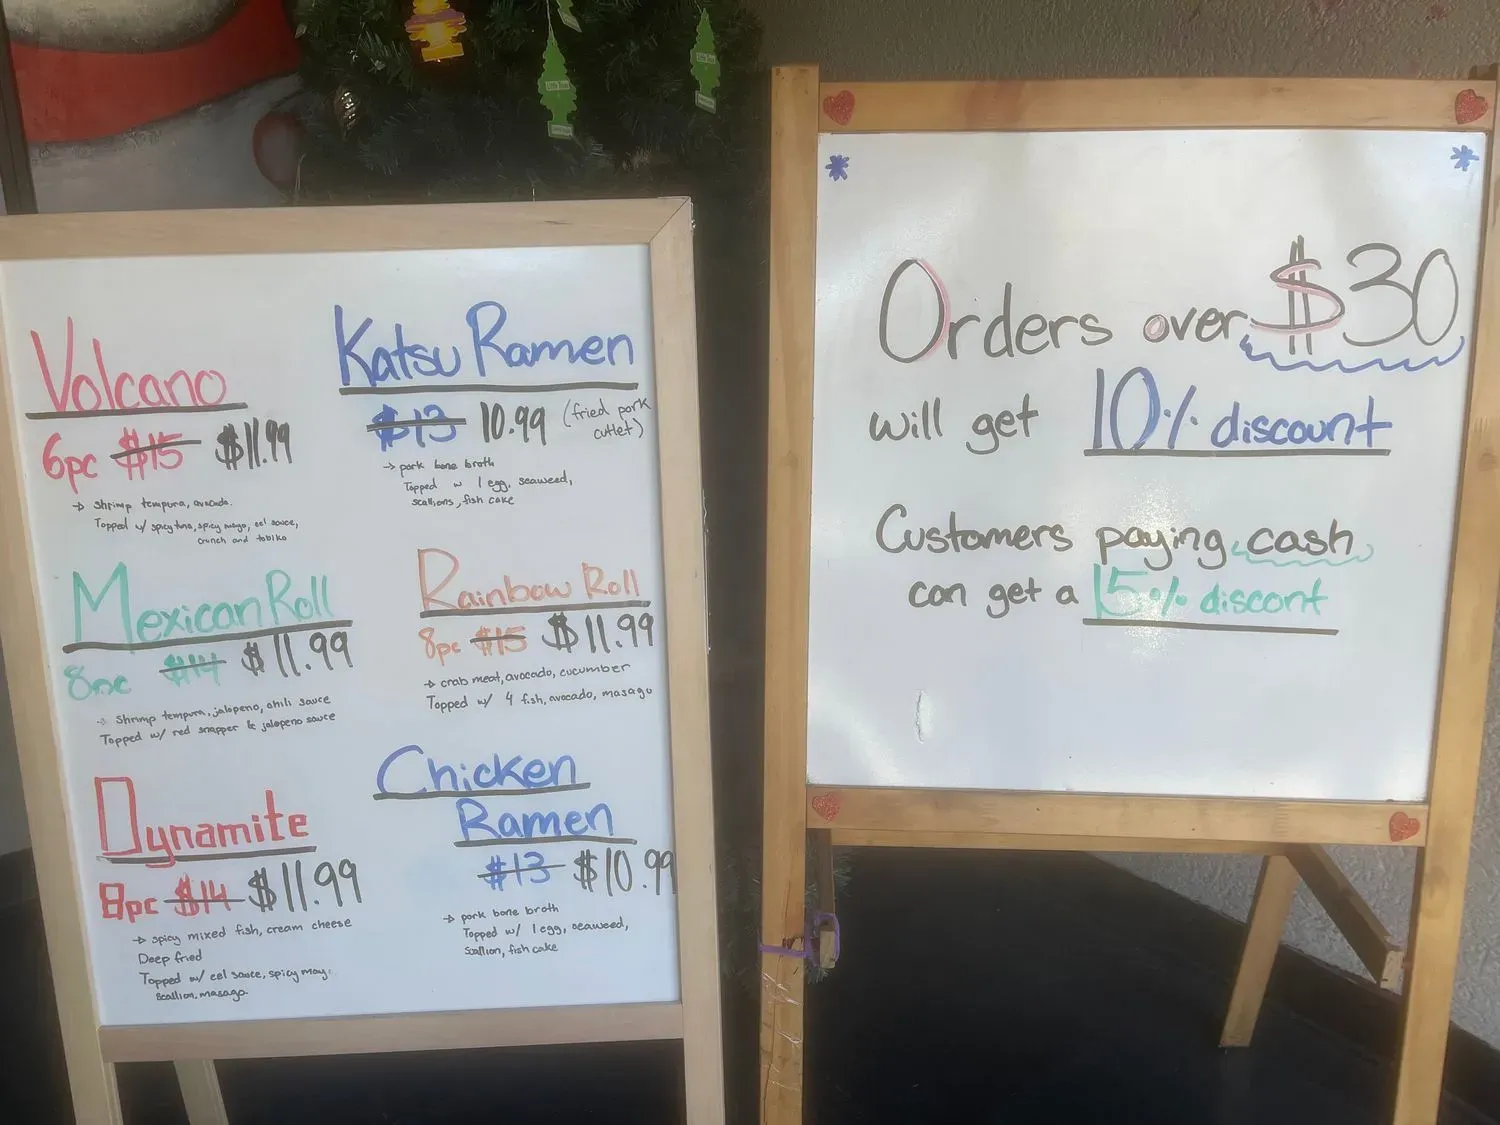 Volcano
6pc $15 $11.99
→ Shrimp tempura, avocado.
Topped w/ spicy tuna, spicy mayo, eel sauce,
crunch and tobiko
Mexican Roll
8pc $14 $11.99
→ Shrimp tempura, jalopeno, chili sauce
Topped w/ red snapper & jalopeno sauce
Dynamite
8pc $14 $11.99
→ spicy mixed fish, cream cheese
Deep fried
Topped w/ eel sauce, spicy mayo,
scallion, masago.
Katsu Ramen
$13 10.99 (fried pork
cutlet)
→ pork bone broth
Topped w 1 egg, seaweed,
scallions, fish cake
Rainbow Roll
8pc $15 $11.99
→ crab meat, avocado, cucumber
Topped w/ 4 fish, avocado, masago
Chicken
Ramen
$13 $10.99
→ pork bone broth
Topped w/ 1 egg, seaweed,
Scallion, fish cake
Orders over $30
will get 10% discount
Customers paying cash
can get a 15% discont